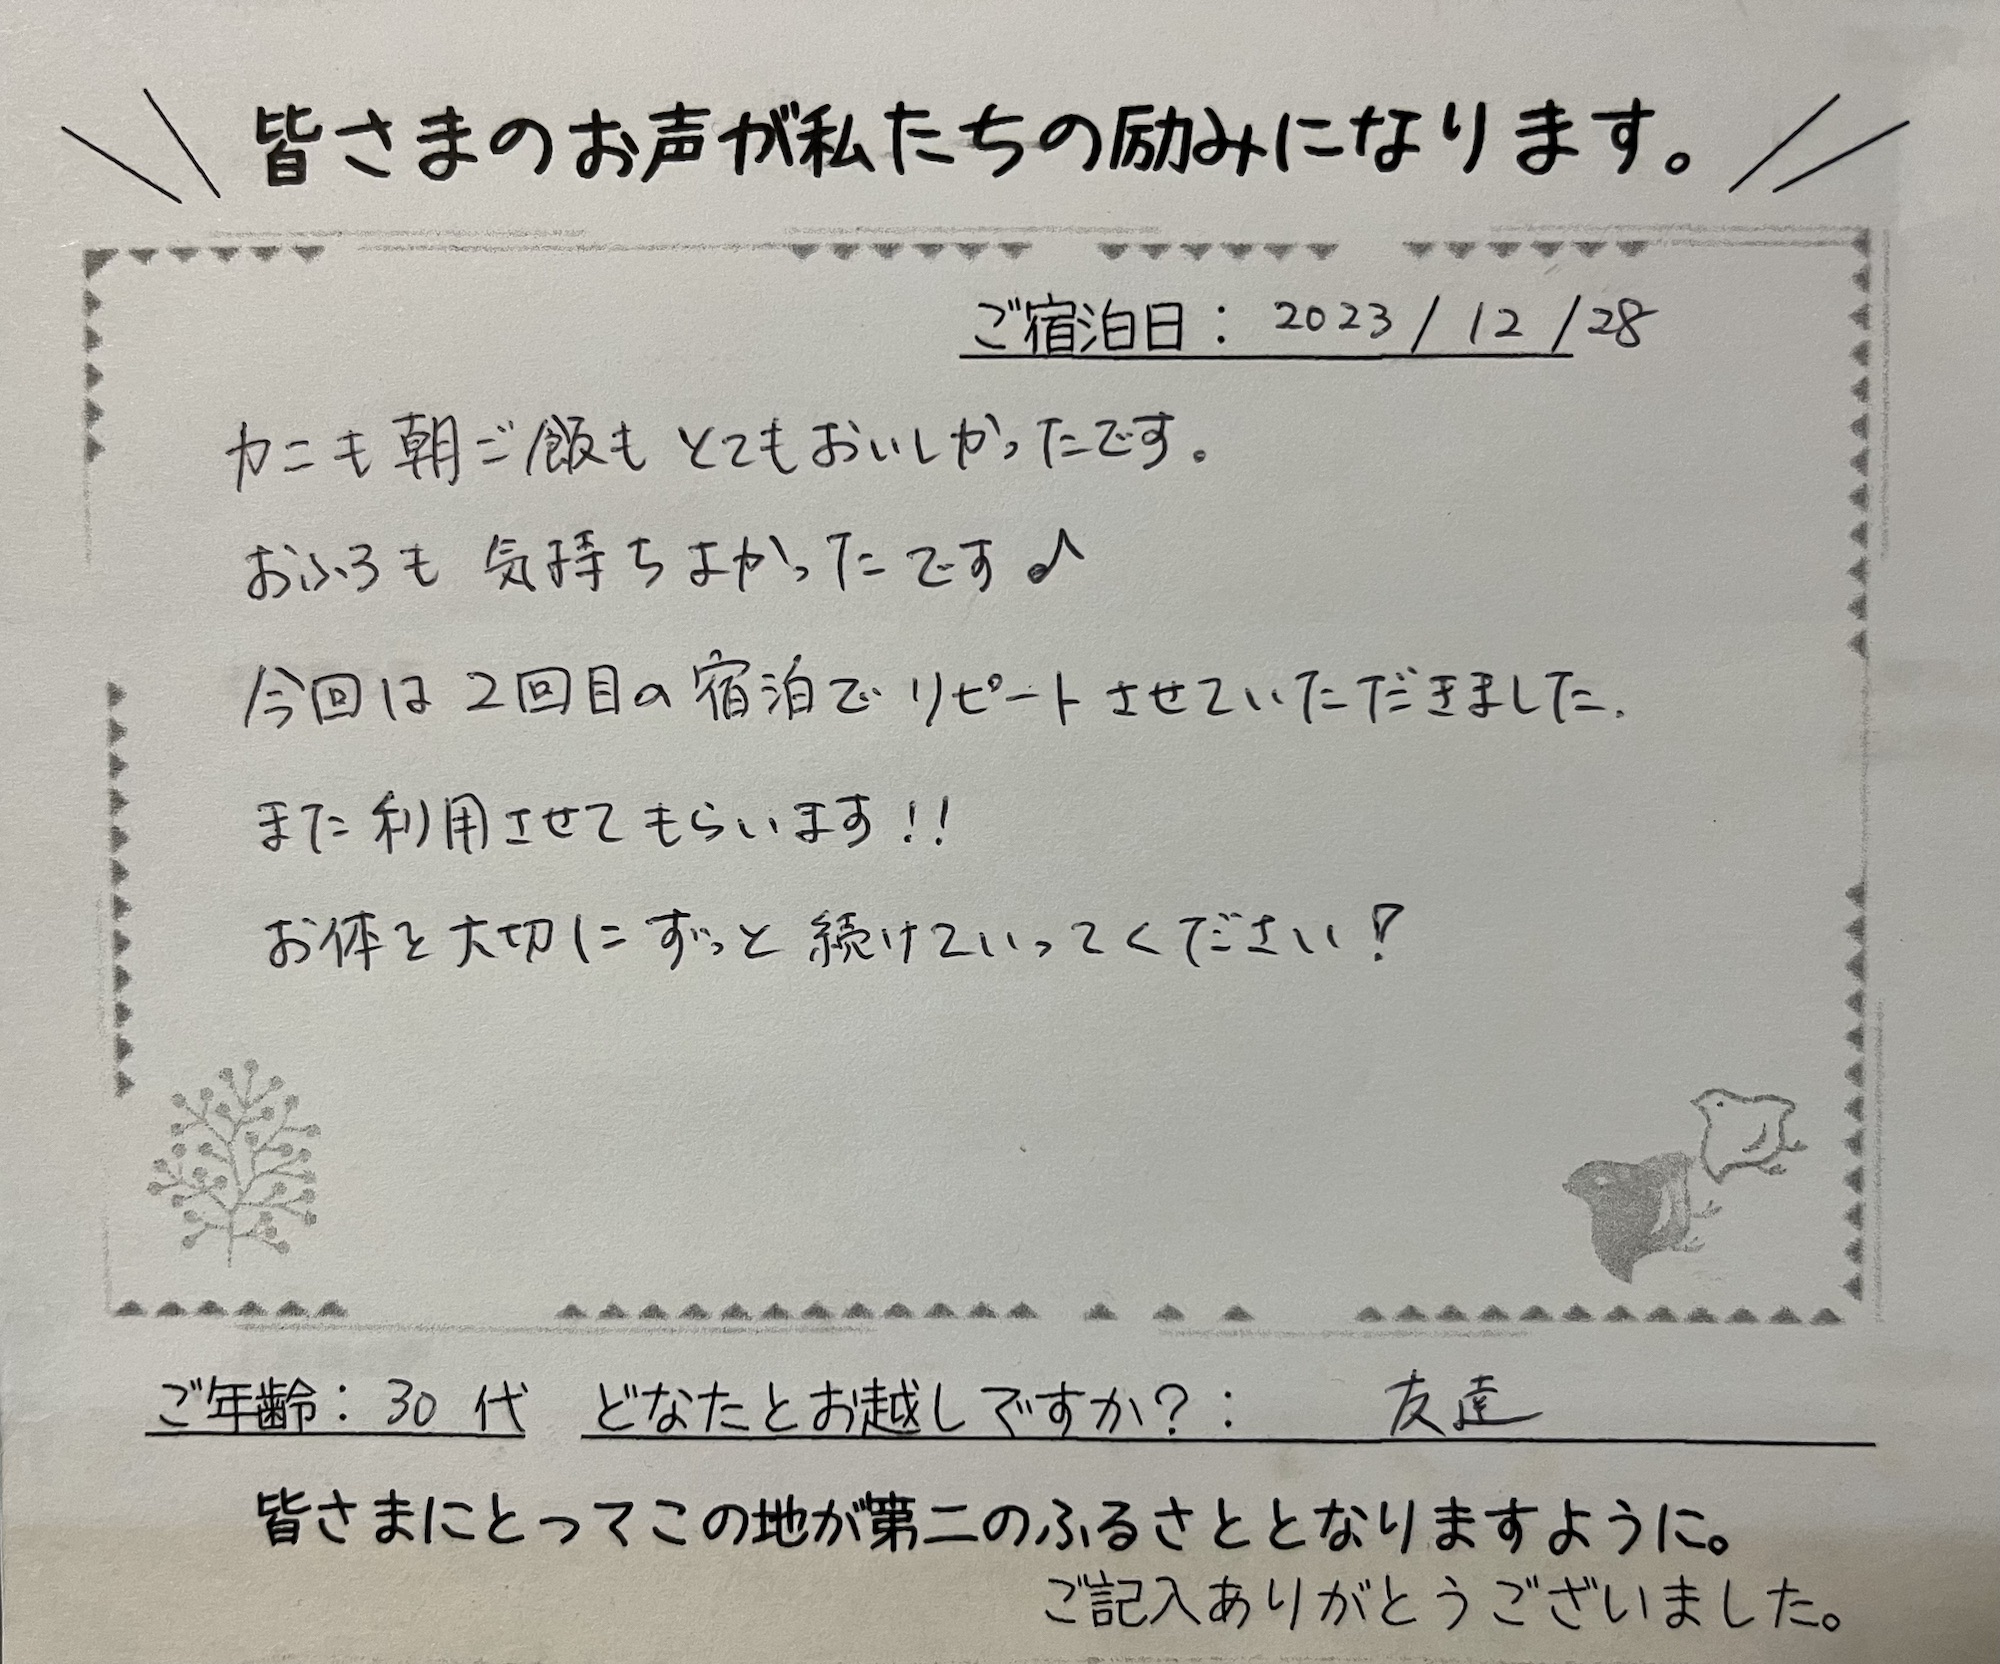 皆さまのお声が私たちの励みになります。
ご宿泊日： 2023 / 12 /28
カニも朝ご飯もとてもおいしかったです。
おふろも気持ちよかったです♪
今回は2回目の宿泊でリピートさせていただきました.
また利用させてもらいます!!
お体を大切にずっと続けていってください!
ご年齢： 30 代 どなたとお越しですか？： 友達
皆さまにとってこの地が第二のふるさととなりますように。
ご記入ありがとうございました。